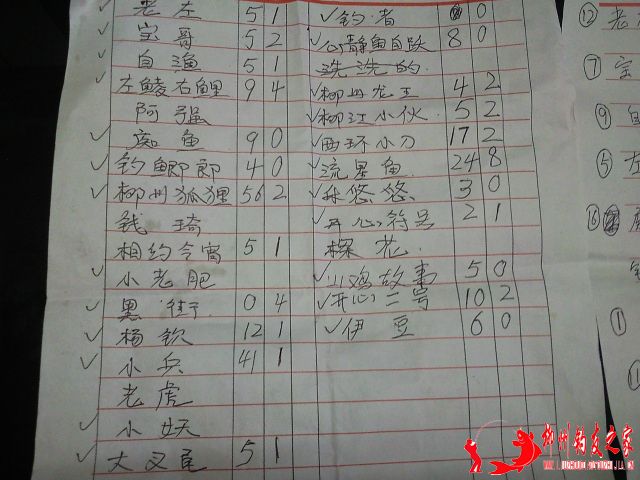 老左 5 1
宝哥 5 2
自渔 5 1
左鲮右鲤 9 4
阿强
痴鱼 9 0
钓鲫郎 4 0
柳州狐狸 56 2
钱琦
相约今宵 5 1
小老肥
黑街 0 4
杨钦 12 1
小兵 41 1
老虎
小妖
大叉尾 5 1
钓者 0
心静鱼自跃 8 0
洗洗的
柳州龙王 4 2
柳江小伙 5 2
西环小刀 17 2
流星鱼 248
悠悠 3 0
开心符号 2 1
棵花
小鸡故事 5 0
开心二号 10 2
伊豆 6 0
⑫ 老
⑦ 宝
⑨ 自
⑤ 左
16
①
柳州钓友之家